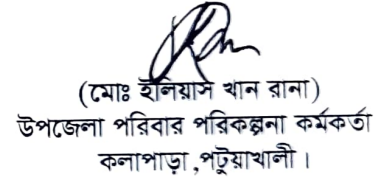 (মোঃ ইলিয়াস খান রানা)
উপজেলা পরিবার পরিকল্পনা কর্মকর্তা
কলাপাড়া, পটুয়াখালী।